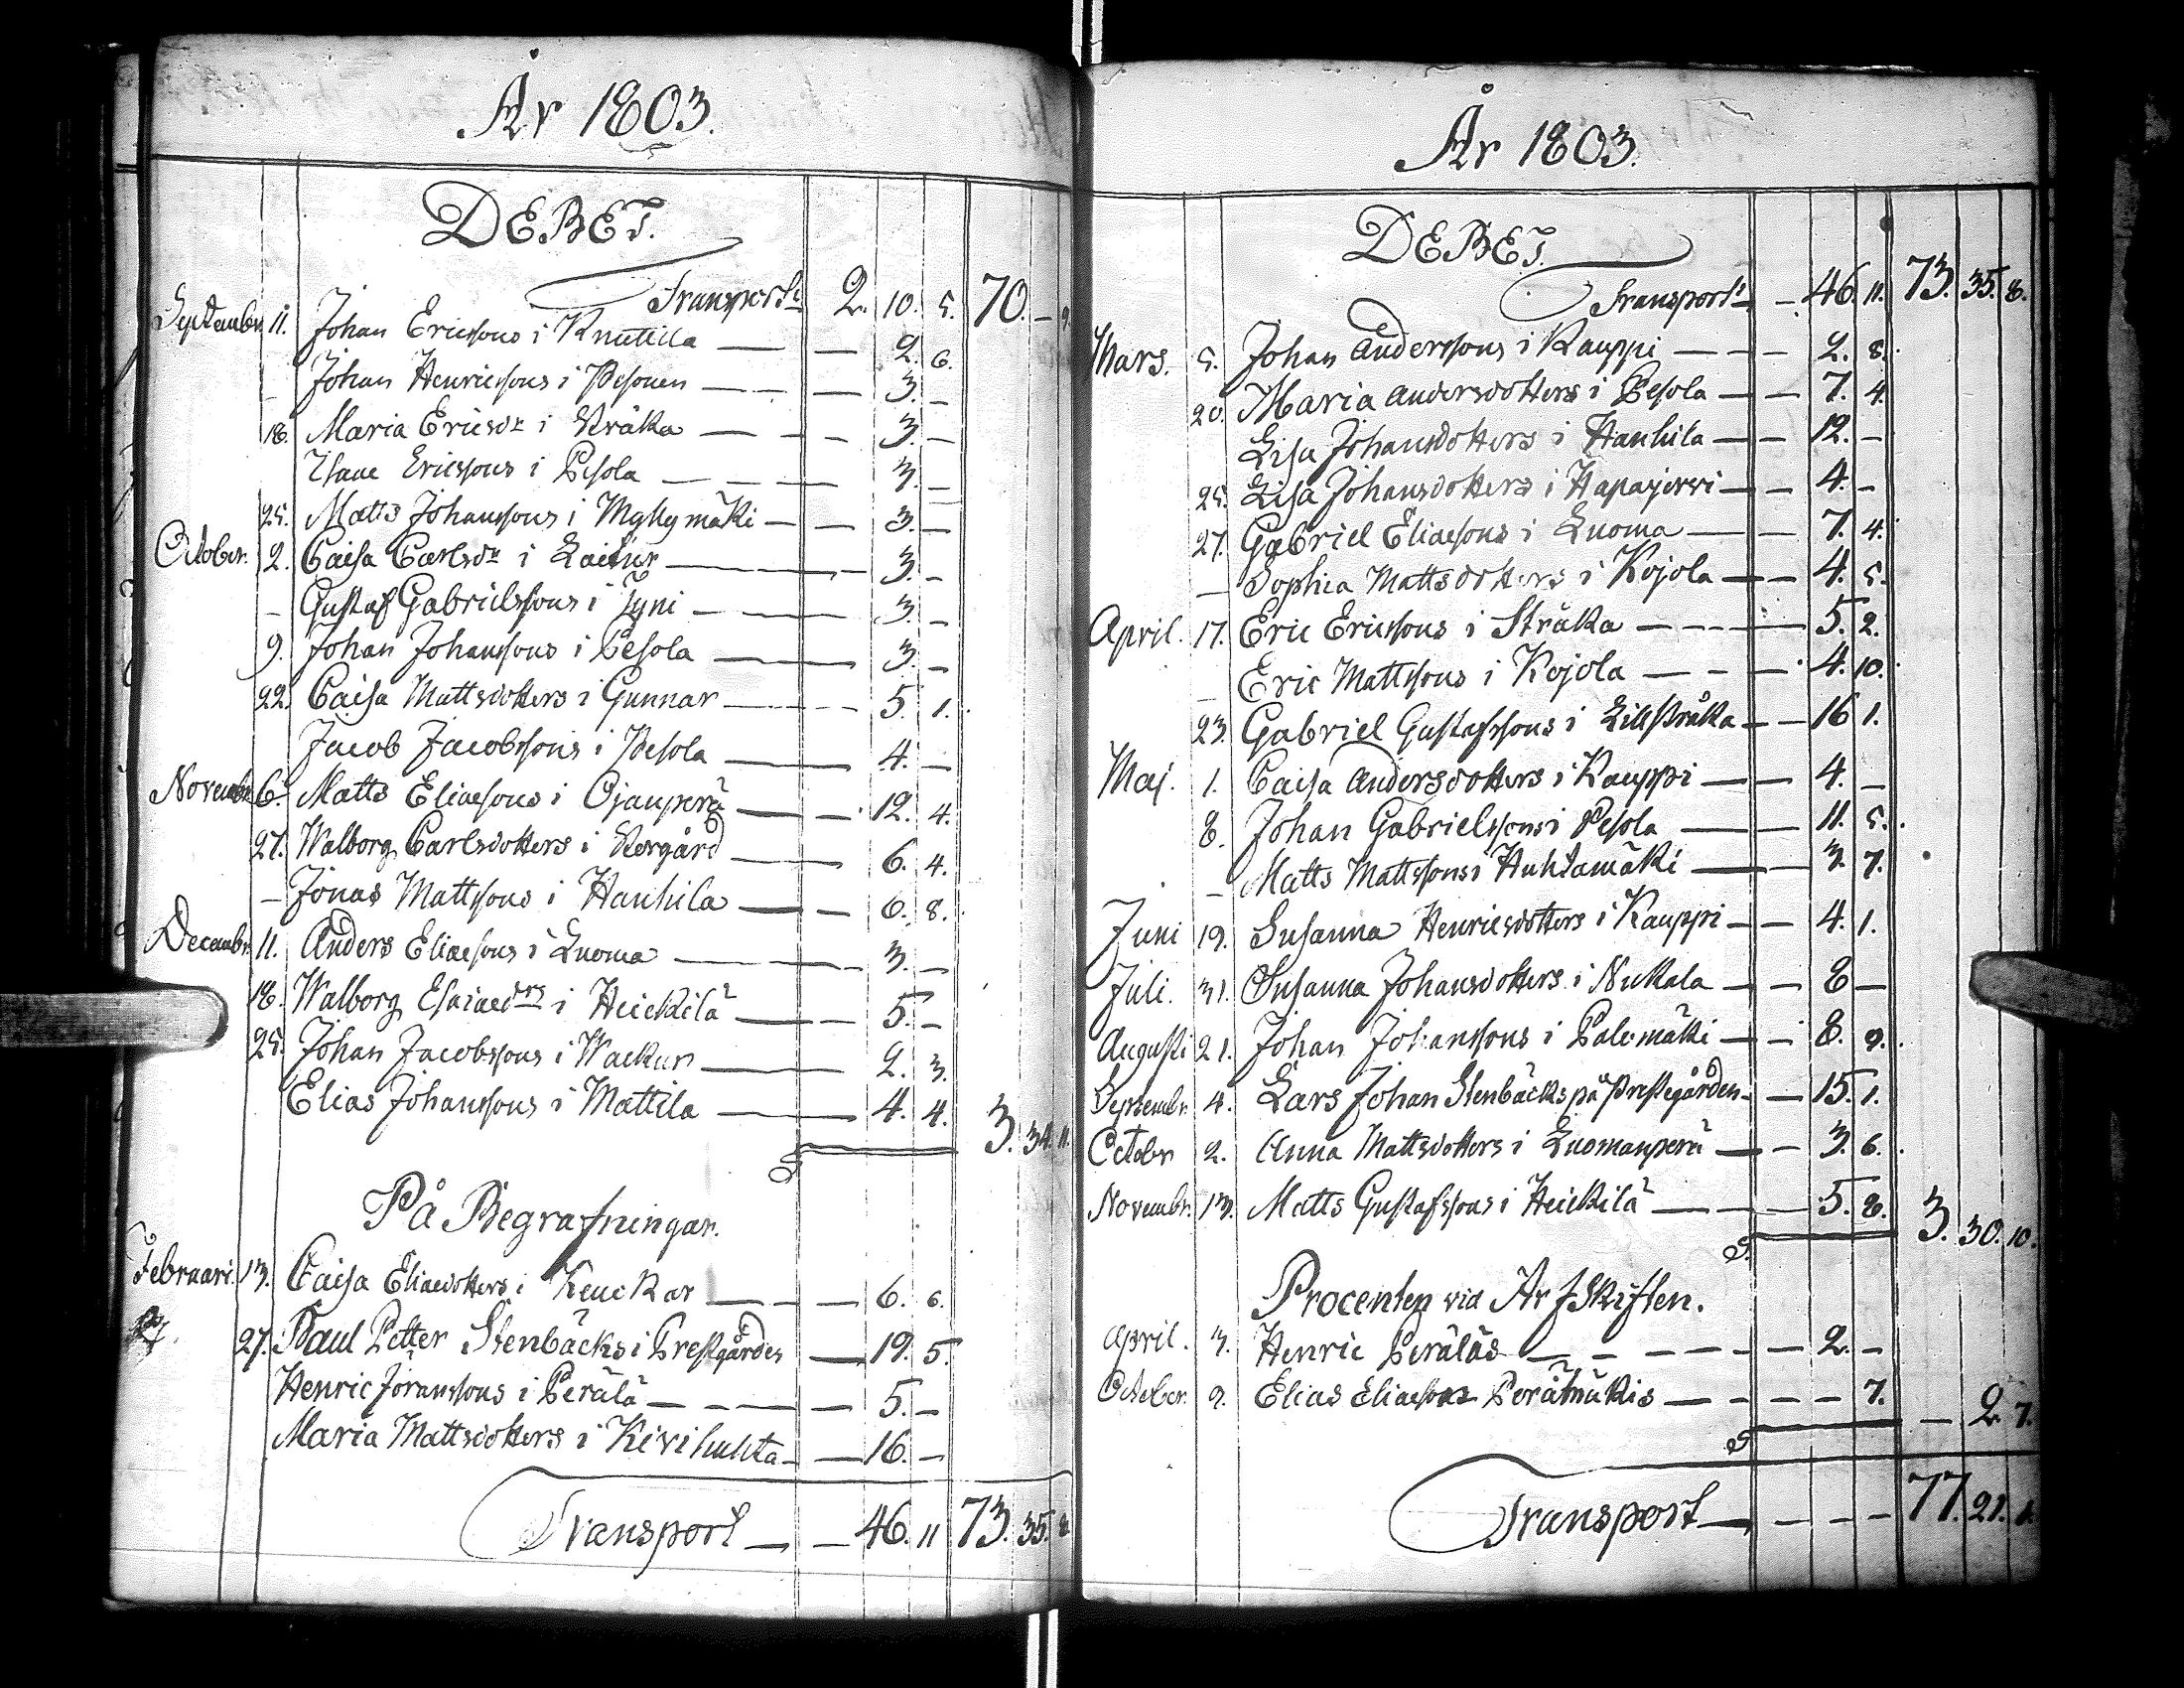 År 1803.
DEBET.
Transport 2. 10. 5. 70. — 9.
Septembr. 11. Johan Ericssons i Knuttila — — 2. 6.
— Johan Henricssons i Pesonen — — 3. —
18. Maria Ericsdr i Stråka — — 3. —
Isaac Ericssons i Pesola — — 3. —
25. Matts Johanssons i Myllymäki — — 3. —
October. 2. Caisa Carlsdr i — 3. —
— Gustaf Gabrielssons i Jyni — 3. —
9. Johan Johanssons i Pesola — 3. —
22. Caisa Mattsdotters i Gunnar — 5. 1.
Jacob Jacobssons i Pesola — 4. —
Novembr 6. Matts Eliaesons i Ojanperä — 12. 4.
27. Walborg Carlsdotters i Storgård — 6. 4.
— Jonas Mattssons i Hanhila — — 6. 8.
Decembr. 11. Anders Eliaesons i Luoma — 3. —
18. Walborg Esaiaedrs i Heickilä — 5. —
25. Johan Jacobssons i Wackur — 2. 3.
Elias Johanssons i Mattila — 4. 4. 3. 34. 11.
S
På Begrafningar.
Februari. 13. Caisa Eliaedotters i Keuckar — — 6. 6.
27. Paul Petter Stenbäcks i Prestgården — 19. 5.
Henric Joranssons i Perälä — — 5. —
Maria Mattsdotters i Kivihuhta — 16. —
Transport — — 46. 11 73. 35. 8.
År 1803.
DEBET.
Transport — 46. 11. 73. 35. 8.
Mars. 5. Johan Anderssons i Kauppi — — 2. 8.
20. Maria Andersdotters i Pesola — — 7. 4.
Lisa Johansdotters i Hanhila — — 12. —
25. Lisa Johansdotters i Hapajerwi — — 4. —
27. Gabriel Eliaesons i Luoma — — 7. 4.
— Sophia Mattsdotters i Kojola — — 4. 5.
April. 17. Eric Ericssons i Stråka — — 5. 2.
— Eric Mattssons i Kojola — — 4. 10.
23. Gabriel Gustafssons i Lillstråka — — 16 1.
Maj. 1. Caisa Andersdotters i Kauppi — — 4. —
8. Johan Gabrielssons i Pesola — — 11. 5.
— Matts Mattssons i Huhtamäki — — 3. 7.
Juni 19. Susanna Henricsdotters i Kauppi — — 4. 1.
Juli. 31. Susanna Johansdotters i Nukala — — 8 —
Augusti 21. Johan Johanssons i Palomäki — — 8. 9.
Septembr. 4. Lars Johan Stenbäcks på Prestegården — — 15. 1.
Octobr 2. Anna Mattsdotters i Luomanperä — — 3. 6.
Novembr. 13. Matts Gustafssons i Heickilä — — 5. 8. 3. 30. 10.
S.
Procenten vid Arfskiften.
April. 3. Henric Peräläs — — 2. —
October. 9. Elias Eliaesons Perämäkis — — 7. — 2. 7.
S
Transport — — — 77. 21. 1.